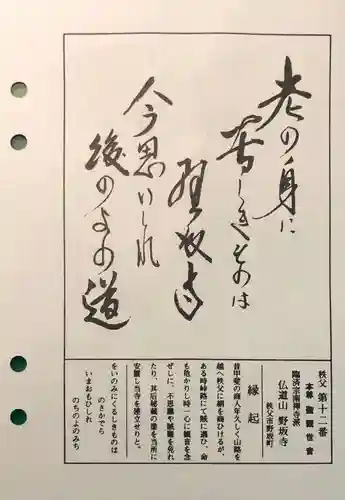 老の身に
苦しきものは
野坂寺
今思ひしれ
後のよの道
秩父 第十二番
本尊 聖観世音
臨済宗南禅寺派
仏道山 野坂寺
秩父市野坂町
縁起
昔甲斐の商人年久しく山路を
越へ秩父に絹を商ひけるが、
ある時峠路にて賊に遇ひ、命
も危かりし時一心に観音を念
ぜしに、不思議や賊難を免れ
たり、其后秘蔵の像を当所に
安置し当寺を建立せりと。
をいのみにくるしきものは
のさかでら
いまおもひしれ
のちのよのみち